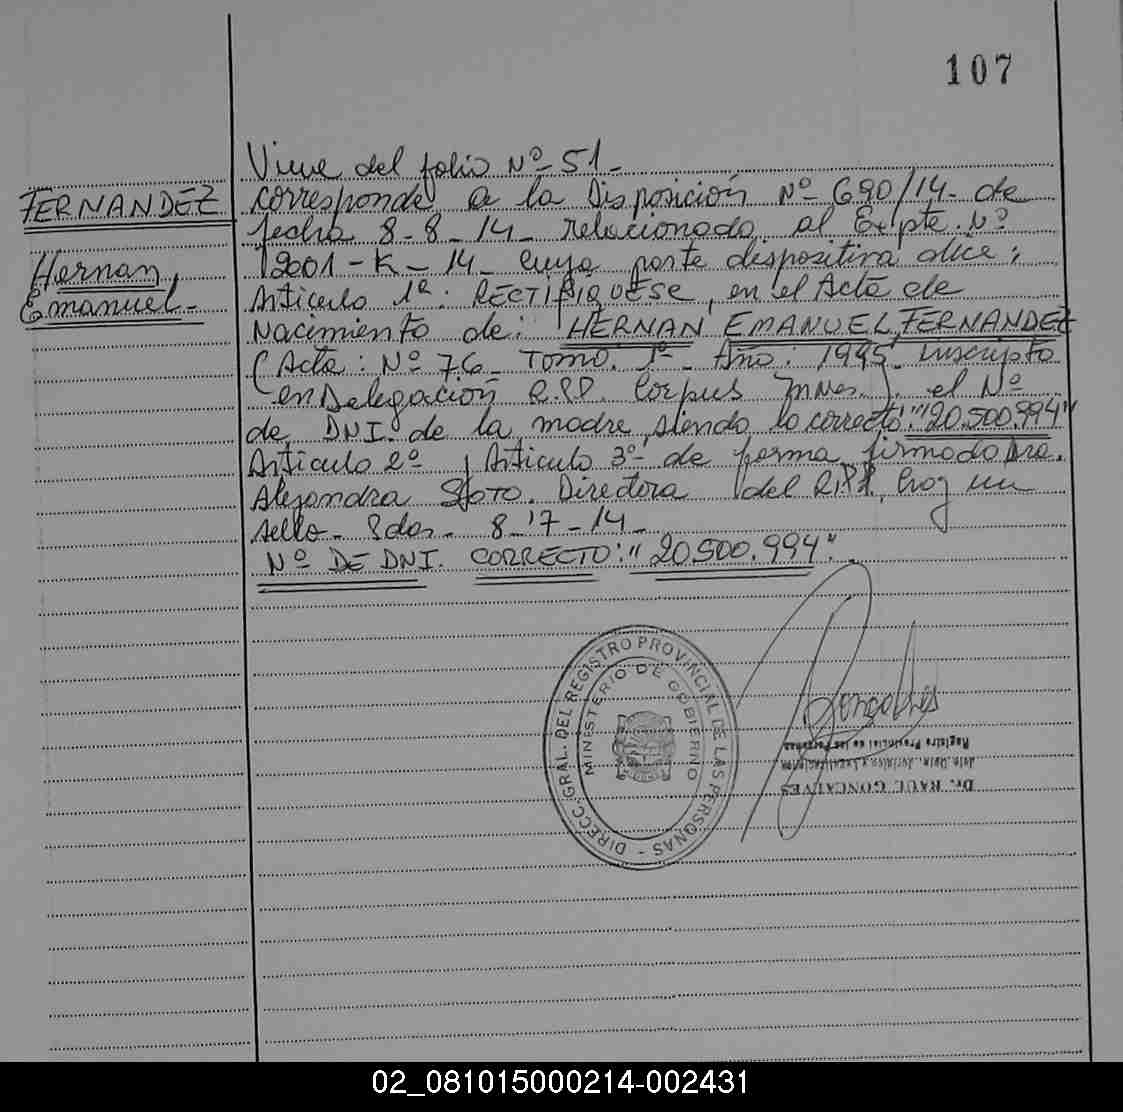 107
FERNANDEZ
Hernan,
Emanuel-
Viene del folio Nº 51-
corresponde a la Disposición Nº 690/14- de
fecha 8-8-14- relacionado al Expte. Nº
12001-K-14- cuya parte dispositiva dice;
Articulo 1º: RECTIFIQUESE, en el Acta de
Nacimiento de: HERNAN EMANUEL FERNANDEZ
(Acta: Nº 76- Tomo: 1º- Año: 1995, inscripto
en Delegación R.P.P. Corpus Mnes.). el Nº
de DNI. de la madre, siendo lo correcto: "20.500.994"
Articulo 2º y Articulo 3º- de forma, firmado Dra.
Alejandra Directora del R.P.P., hay un
sello- Pdas- 8-7-14-
Nº DE DNI. CORRECTO: "20.500.994".
DIRECC. GRAL. DEL REGISTRO PROVINCIAL DE LAS PERSONAS -
MINISTERIO DE GOBIERNO
Goncalves
Dr. RAUL GONCALVES
Registro Provincial de las Personas
02_081015000214-002431